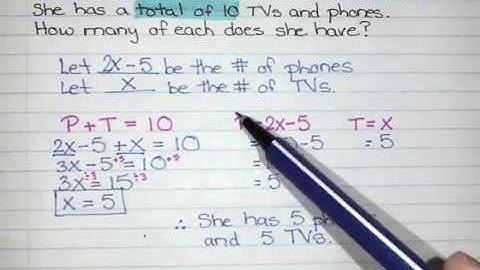 She has a total of 10 TVs and phones.
How many of each does she have?
Let 2x-5 be the # of phones
Let x be the # of TVs.
P + T = 10
2x-5 + x = 10
3x - 5 +5 = 10 +5
3x ÷3 = 15 ÷3
x = 5
2x-5
-5
= 5
T = x
= 5
∴ She has 5
and 5 TVs.